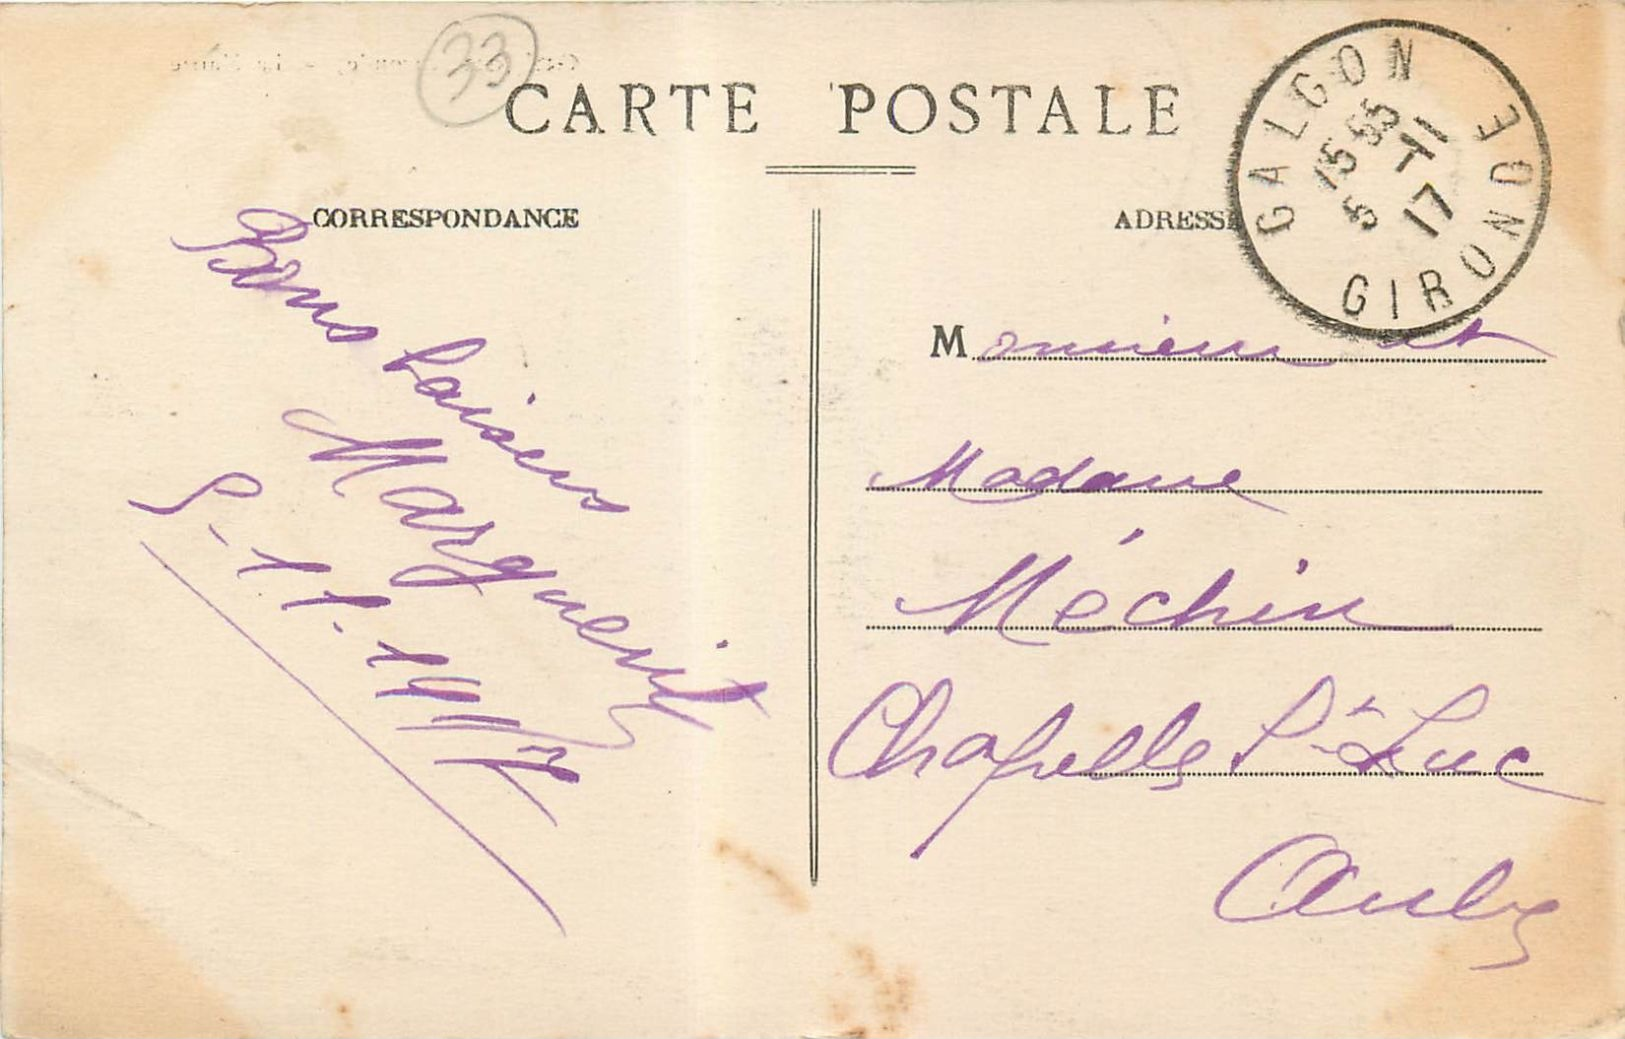 33
CARTE POSTALE
CORRESPONDANCE
Bons baisers
Marguerite
5-11-1917
ADRESSE
GALGON GIRONDE
15 55
5 -11
17
Monsieur et
Madame
Méchin
Chapelle St Luc
Aube